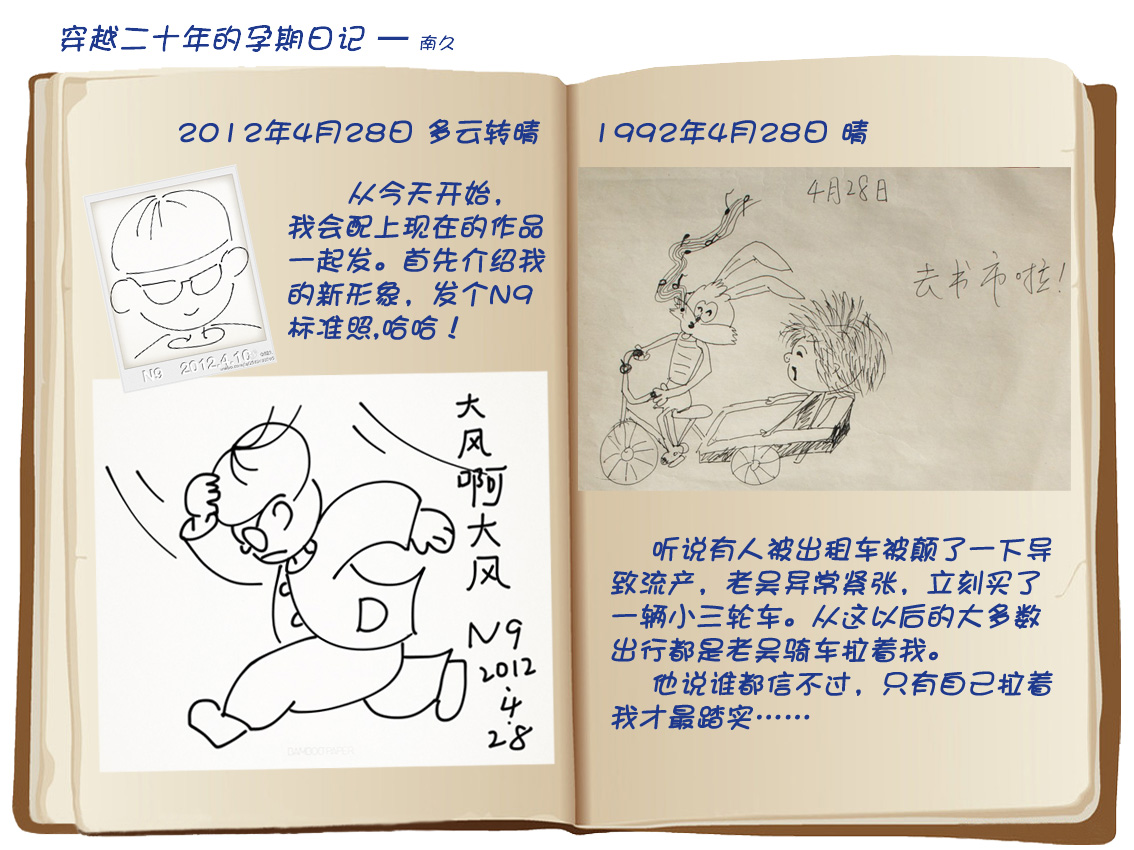 穿越二十年的孕期日记 — 南久
2012年4月28日 多云转晴
从今天开始，
我会配上现在的作品
一起发。首先介绍我
的新形象，发个N9
标准照,哈哈！
N9 2012.4.10
大风啊大风
N9
2012
.4
.28
DAMOO PAPER
1992年4月28日 晴
4月28日
去书市啦！
听说有人被出租车被颠了一下导
致流产，老吴异常紧张，立刻买了
一辆小三轮车。从这以后的大多数
出行都是老吴骑车拉着我。
他说谁都信不过，只有自己拉着
我才最踏实……